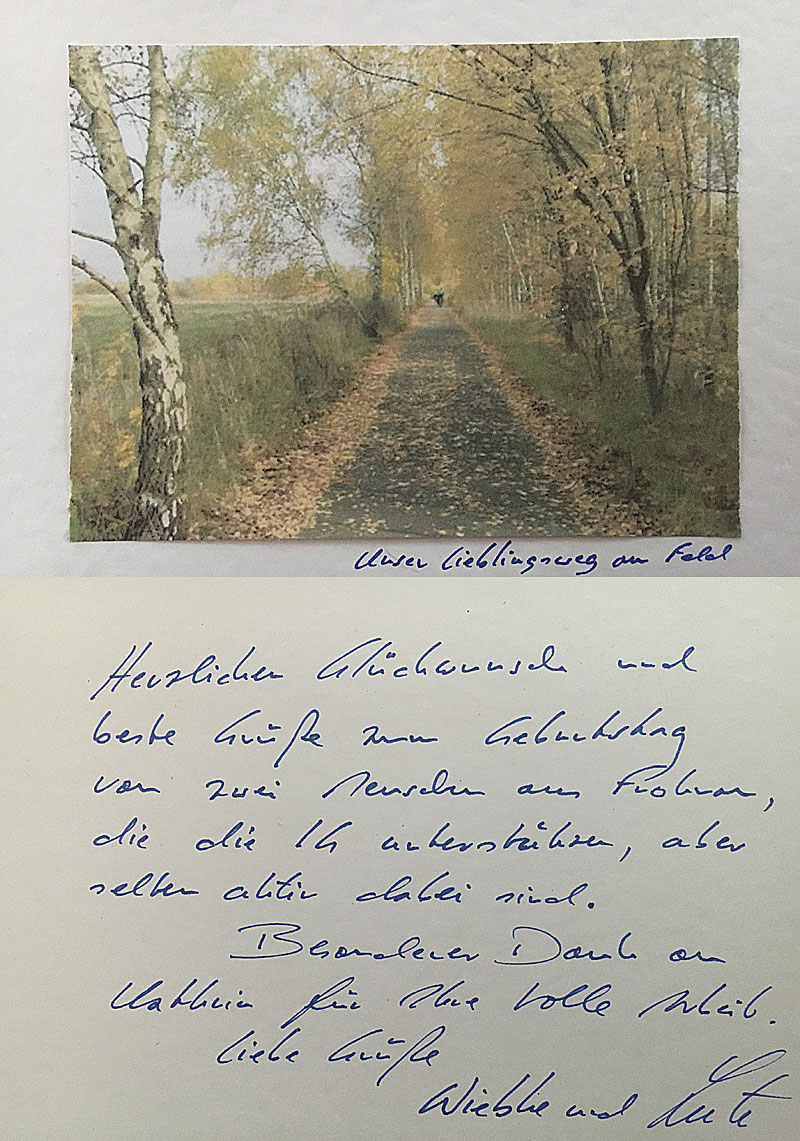 Unser Lieblingsweg am Feld
Herzlichen Glückwunsch und
beste Grüße zum Geburtstag
von zwei Menschen aus Frohnau,
die die IG unterstützen, aber
selten aktiv dabei sind.
Besonderer Dank an
Kathrin für Ihre tolle Arbeit.
Liebe Grüße
Wiebke und